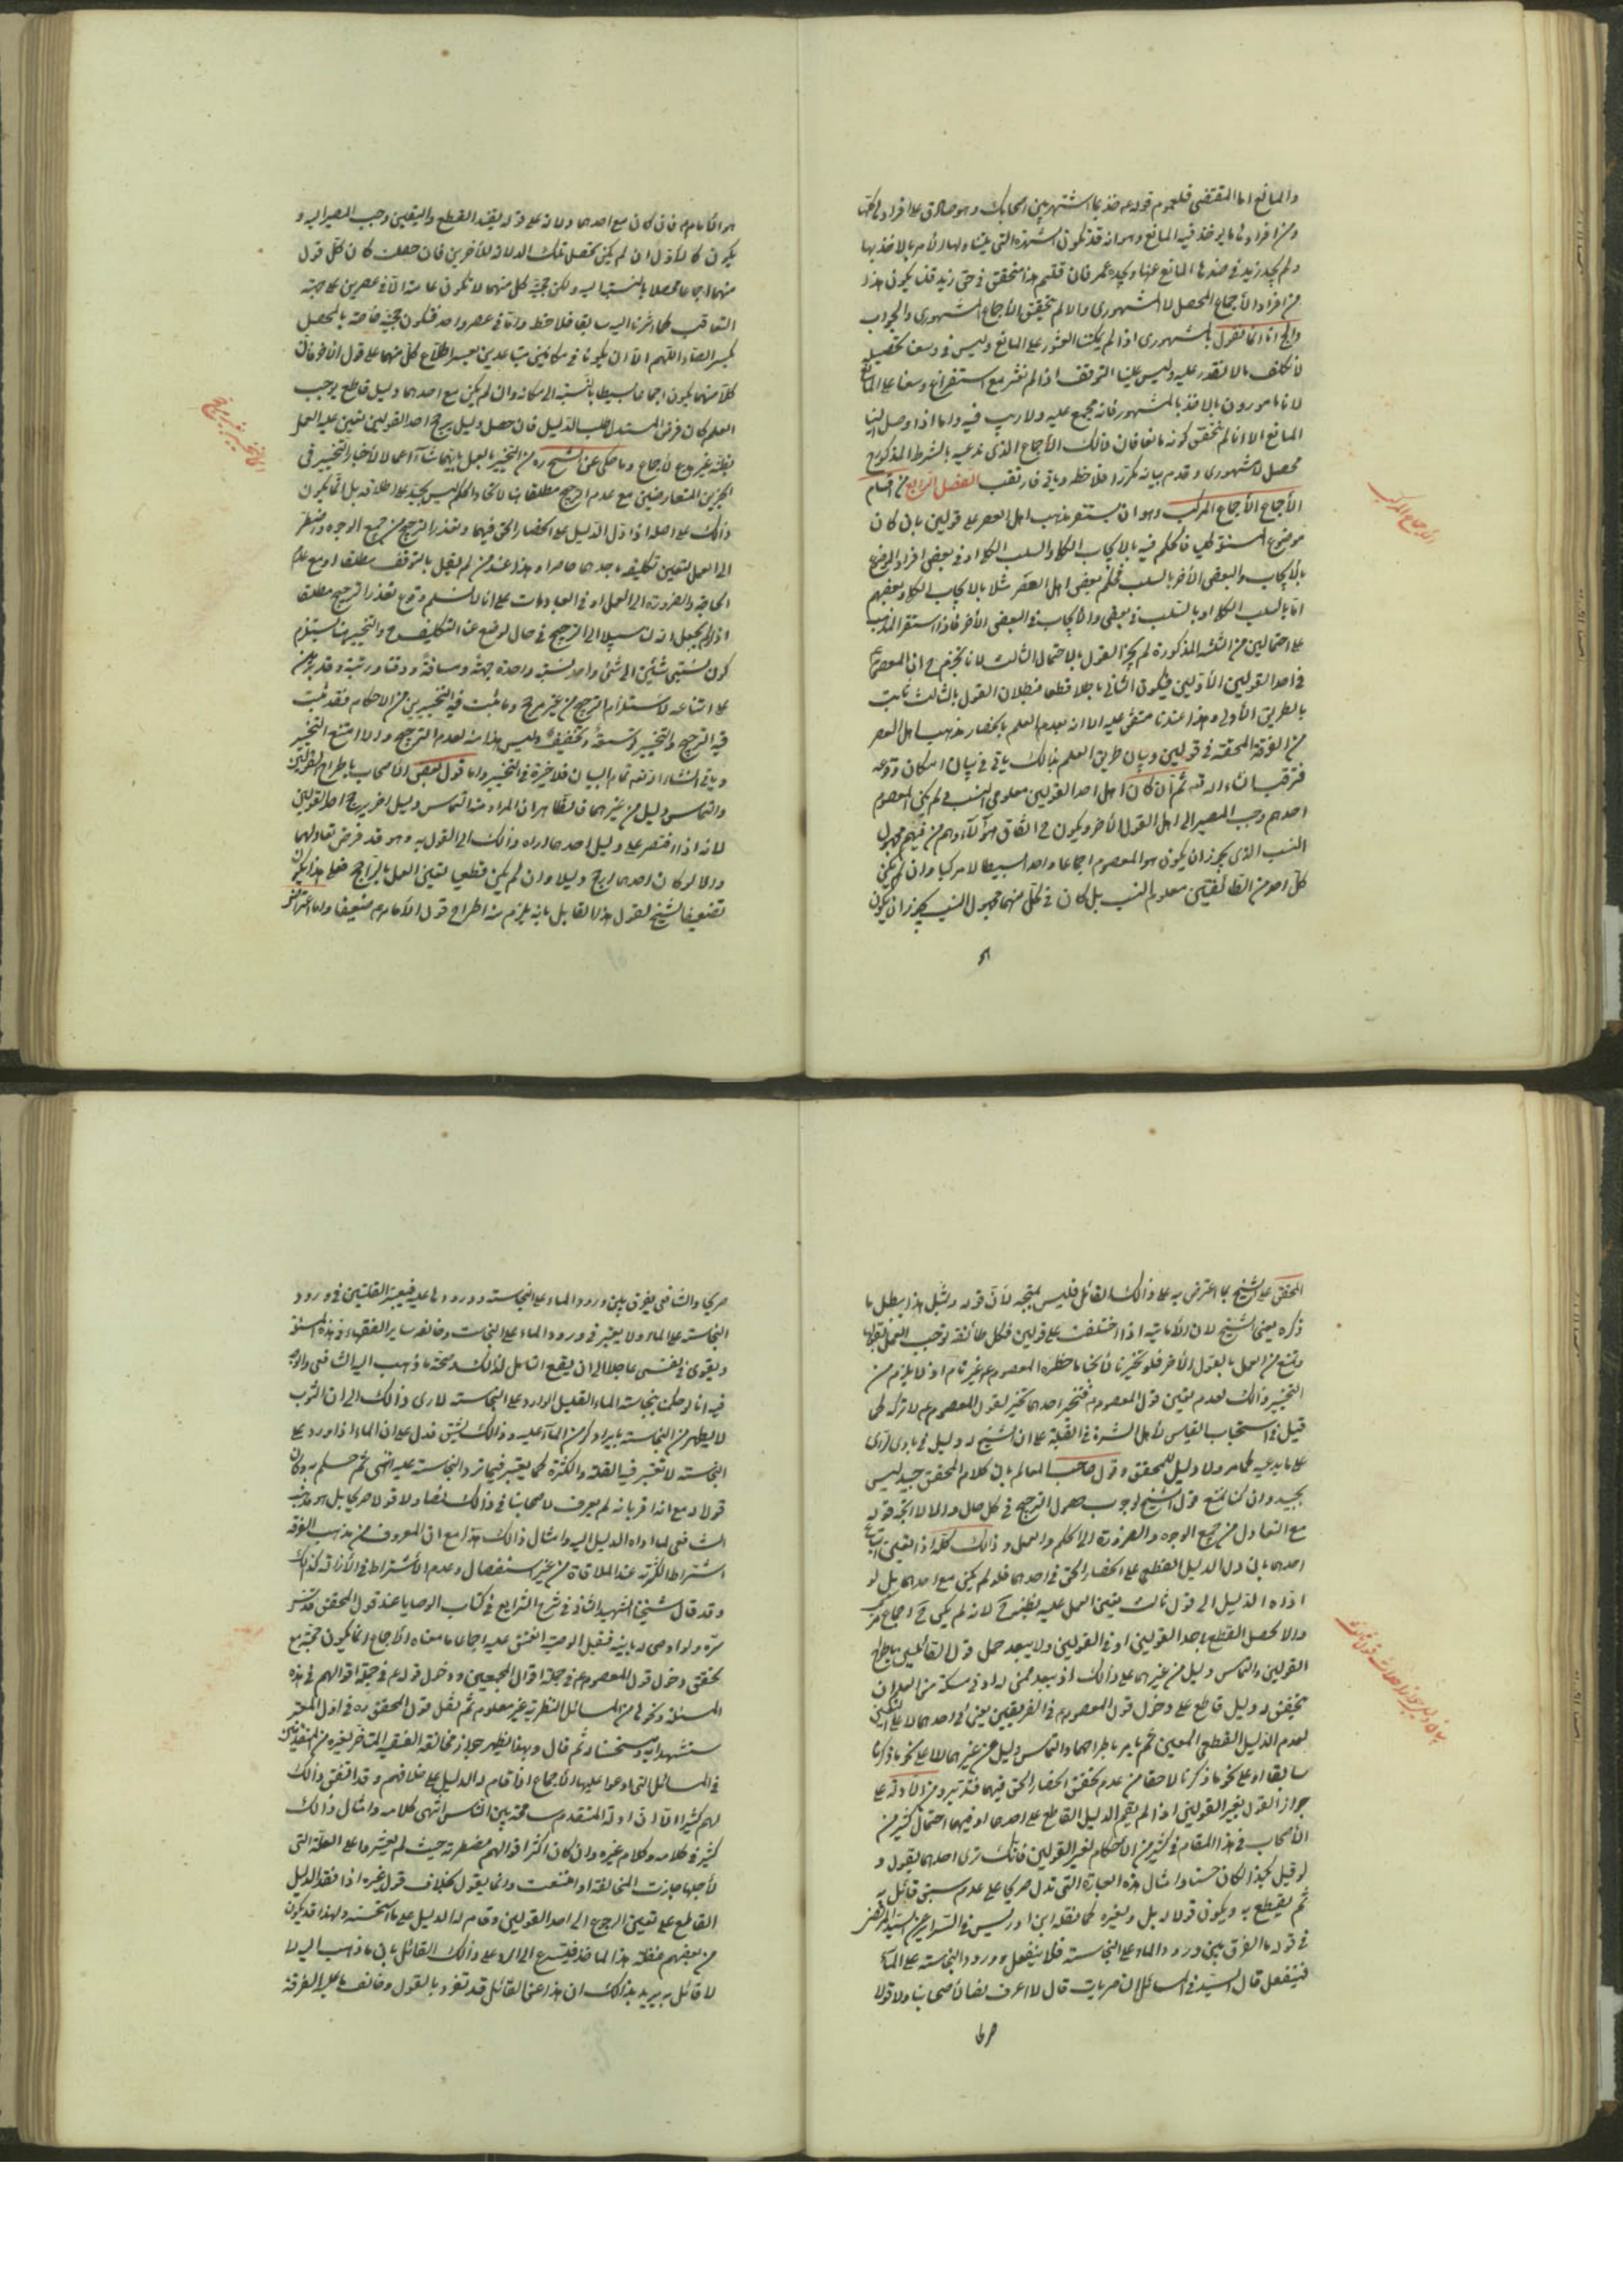 والمانع اما المقتضي فلعموم قوله ع خذ بما اشتهر بين اصحابك وهو صادق على افراد
ومن افراد ما يوخذ فيه المانع وهو انه قد تكون الشهرة التي يتناولها الأمر بالاخذ بها
ولم يجد زيد في ضدها المانع عنها ويجده عمر فان قلتم هذا متحقق في حق زيد قلنا يكون هذا
من افراد الأجماع المحصل لا المشهوري والا لم يتحقق الأجماع المشهوري والجواب
انا انما نقول بالمشهوري اذا لم يمكننا العثور على المانع وليس في وسعنا تحصيله
لا نكلف ما لا نقدر عليه وليس علينا التوقف اذا لم نعثر مع استفراغ وسعنا على المانع
لانا مامورون بالاخذ بالمشهور فانه مجمع عليه ولا ريب فيه واما اذا وصل الينا
المانع الا انا لم نتحقق كونه مانعا فان ذلك الأجماع الذي ندعيه بالشرط المذكور
محصل لا مشهوري وقدم بيانه مكررا فلاحظ وياتي فارتقب الفصل الرابع من اقسام
الأجماع الأجماع المركب وهو ان يستقر مذهب اهل العصر على قولين بان كان
موضوع المسئلة كلي فالحكم فيه بالايجاب الكلي والسلب الكلي او في بعض افراد الموضوع
بالأيجاب والبعض الأخر بالسلب فحكم بعض اهل العصر مثلا بالايجاب الكلي وبعضهم
اما بالسلب الكلي او بالسلب في بعض والأيجاب في البعض الأخر فاذا استقر المذهب
على احتمالين من الثلثة المذكورة لم يجز القول بالاحتمال الثالث لانا نجزم ح ان المعصوم ع
في احد القولين الأولين فيكون الثاني باطلا قطعا فبطلان القول بالثالث ثابت
بالطريق الأولى وهذا عندنا متفق عليه الا انه بعد العلم بانحصار مذهب اهل العصر
من الفرقة المحقة في قولين وبيان طريق العلم بذلك ياتي في بيان امكان وقوعه
فترقب انشاء الله ثم ان كان اهل احد القولين معلومي النسب لم يكن المعصوم
احدهم وجب المصير الى اهل القول الأخر ويكون ح اتفاق هؤلاء وهم من فيهم مجهول
النسب الذي يجوز ان يكون هو المعصوم اجماعا واحدا بسيطا لا مركبا وان لم يكن
كل احد من الطائفتين معلوم النسب بل كان في كل منهما مجهول النسب يجوز ان يكون
الأجماع المركب
هو الأمام فان كان مع احدهما دلالة على قوله يفيد القطع واليقين وجب المصير اليه و
يكون كالأول ان لم يكن تحصل تلك الدلالة للأخرين فان حصلت كان كل قول
منهما اجماعا محصلا بالنسبة اليه ولكن حجية كل منهما لا تكون عامة الا في عصرين على جهة
التعاقب كما اشرنا اليه سابقا فلاحظ واما في عصر واحد فتكون حجيته خاصة بالمحصل
بكسر الصاد اللهم الا ان يكونا في مكانين متباعدين يعسر اطلاع كل منهما على قول الاخر فان
كلا منهما يكون اجماعا بسيطا بالنسبة الى مكانه وان لم يكن مع احدهما دليل قاطع يوجب
العلم كان فرض المستدل طلب الدليل فان حصل دليل يرجح احد القولين تعين عليه العمل
وما حكي عن الشيخ ره من التخيير بالعمل بايهما شاء اعمالا لأخبار التخيير في
الخبرين المتعارضين مع عدم الترجيح مطلقا والحكم ليس بجيد على اطلاقه بل انما يكون
ذلك على اصله اذا دل الدليل على انحصار الحق فيهما وتعذر الترجيح من جميع الوجوه واضطر
الى العمل لتعين تكليفه باحدهما حاضرا وهذا عند من لم يقل بالتوقف مطلقا او مع عدم
الحاجة والضرورة الى العمل او في العبادات على انا لا نسلم وقوع تعذر الترجيح مطلقا
اذ لم يجعل الله لنا سبيلا الى الترجيح في حال لوضع عنا التكليف ح والتخيير هنا يستلزم
كون نسبتي شيئين الى شئ واحد نسبة واحدة جهة ومسافة ووقتا ورتبة وقد برهن
على امتناعه لاستلزام الترجيح من غير مرجح وما ثبت فيه التخيير من الاحكام فقد ثبت
فيه الترجيح والتخيير توسعة وتخفيفا وليس هذا منه لعدم الترجيح والا امتنع التخيير
وياتي انشاء الله تمام البيان فلا خيرة في التخيير واما قول بعض الأصحاب باطراح القولين
والتماس دليل من غيرهما فالظاهر ان المراد منه التماس دليل اخر يرجح احد القولين
لانه اذا اقتصر على دليل احدهما اداه ذلك الى القول به وهو قد فرض تعادلهما
والا لو كان احدهما ارجح دليلا وان لم يكن قطعي لتعين العمل بالراجح فعلى هذا يكون
تضعيف الشيخ لقول هذا القائل بانه يلزم منه اطراح قول الأمام ع ضعيفا واما اعتراض
المحقق على الشيخ بما اعترض به على ذلك القائل فليس بمتجه لأن قوله وبمثل هذا يبطل ما
ذكره يعني الشيخ لان الأمامية اذا اختلفت على قولين فكل طائفة توجب العمل بقولها
وتمنع من العمل بالقول الأخر فلو تخيرنا لأبحنا ما حظره المعصوم ع غير تام اذ لا يلزم من
التخيير ذلك لعدم تعين قول المعصوم ع فتخير احدهما تخير لقول المعصوم ع لا تركه كما
قيل في استحباب القياس لأهل المشرق في القبلة على ان الشيخ له دليل في بادي الرأي
على ما يدعيه كما مر ولا دليل للمحقق وقول صاحب المعالم بان كلام المحقق جيد ليس
بجيد وان كنا نمنع قول الشيخ لوجوب حصول الترجيح في كل حال والا لا اتجه قوله
مع التعادل من جميع الوجوه والضرورة الى الحكم والعمل وذلك كله اذا تعين اتباع
احدهما بان دل الدليل القطعي على انحصار الحق في احدهما فلو لم يكن مع احدهما بل لو
اداه الدليل الى قول ثالث تعين العمل عليه بظنه ح لانه لم يكن ح اجماع مركب
والا لحصل القطع باحد القولين او في القولين ولا يبعد حمل قول القائلين باطراح
القولين والتماس دليل من غيرهما على ذلك اذ يبعد ممن له ادنى مسكة من العلم ان
يتحقق له دليل قاطع على دخول قول المعصوم ع في الفريقين يعني في احدهما لا على التعيين
لعدم الدليل القطعي المعين ثم يامر باطراحهما والتماس دليل من غيرهما لا على نحو ما ذكرنا
سابقا او على نحو ما ذكرنا لاحقا من عدم تحقق انحصار الحق فيهما فتدبر ومن الأدلة على
جواز القول بغير القولين اذا لم يقم الدليل القاطع على احدهما او فيهما احتمال كثير من
الأصحاب في هذا المقام في كثير من الأحكام لغير القولين فانك ترى احدهم يقول و
لو قيل بكذا لكان حسنا وامثال هذه العبارة التي تدل صريحا على عدم سبق قائل به
ثم يقطع به ويكون قولا له بل ولغيره كما نقله ابن ادريس في السرائر عن السيد المرتضى
في قوله بالفرق بين ورود الماء على النجاسة فلا ينفعل وورود النجاسة على الماء
فينفعل قال السيد في المسائل الناصريات قال لا اعرف نصا لأصحابنا ولا قولا
صريحا والشافعي يفرق بين ورود الماء على النجاسة وورودها عليه فيعتبر القلتين في ورود
النجاسة على الماء ولا يعتبر في ورود الماء على النجاسة وخالفه سائر الفقهاء في هذه المسئلة
ويقوى في نفسي عاجلا الى ان يقع التامل لذلك صحة ما ذهب اليه الشافعي والوجه
فيه انا لو حكمنا بنجاسة الماء القليل الوارد على النجاسة لادى ذلك الى ان الثوب
لا يطهر من النجاسة الا بايراد كر من الماء عليه وذلك يشق فدل على ان الماء اذا ورد على
النجاسة لا تعتبر فيه القلة والكثرة كما يعتبر فيما ترد النجاسة عليه انتهى ثم حكم به وكان
قولا له مع انه اقر بانه لم يعرف لاصحابنا في ذلك نصا ولا قولا صريحا بل هو مذهب
الشافعي لما اداه الدليل اليه وامثال ذلك هذا مع ان المعروف من مذهب الفرقة
اشتراط الكرية عند الملاقاة من غير استفصال وعدم الأشتراط في الأزالة كذلك
وقد قال شيخنا الشهيد الثاني في شرح الشرايع في كتاب الوصايا عند قول المحقق قدس
سره ولو اوصى له بابيه فقبل الوصية انعتق عليه اجماعا ما معناه الأجماع انما يكون حجة مع
تحقق دخول قول المعصوم ع في جملة اقوال المجمعين ودخول قوله ع في جملة اقوالهم في هذه
المسئلة ونحوها من المسائل النظرية غير معلوم ثم نقل قول المحقق ره في اول المعتبر
مستشهدا به ومستحسنا له ثم قال وبهذا يظهر جواز مخالفة الفقيه المتأخر لغيره من المتقدمين
في المسائل التي ادعوا عليها الأجماع اذا قام له الدليل على خلافهم وقد اتفق ذلك
لهم كثيرا الا ان زلة المتقدم مسامحة بين الناس انتهى كلامه وامثال ذلك
كثير في كلامه وكلام غيره وان كان اكثر اقوالهم مضطربة حيث لم يعثروا على العلة التي
لأجلها جازت المخالفة او امتنعت وانما يقول بخلاف قول غيره اذا فقد الدليل
القاطع على تعين الرجوع الى احد القولين وقام له الدليل على ما استحسنه ولهذا قد يكون
من بعضهم غفلة هذا الماخذ فيتسرع الى الرد على ذلك القائل بان ما ذهب اليه لا
لا قائل به يريد بذلك ان هذا عني القائل قد تفرد بالقول وخالف ما عليه الفرقة